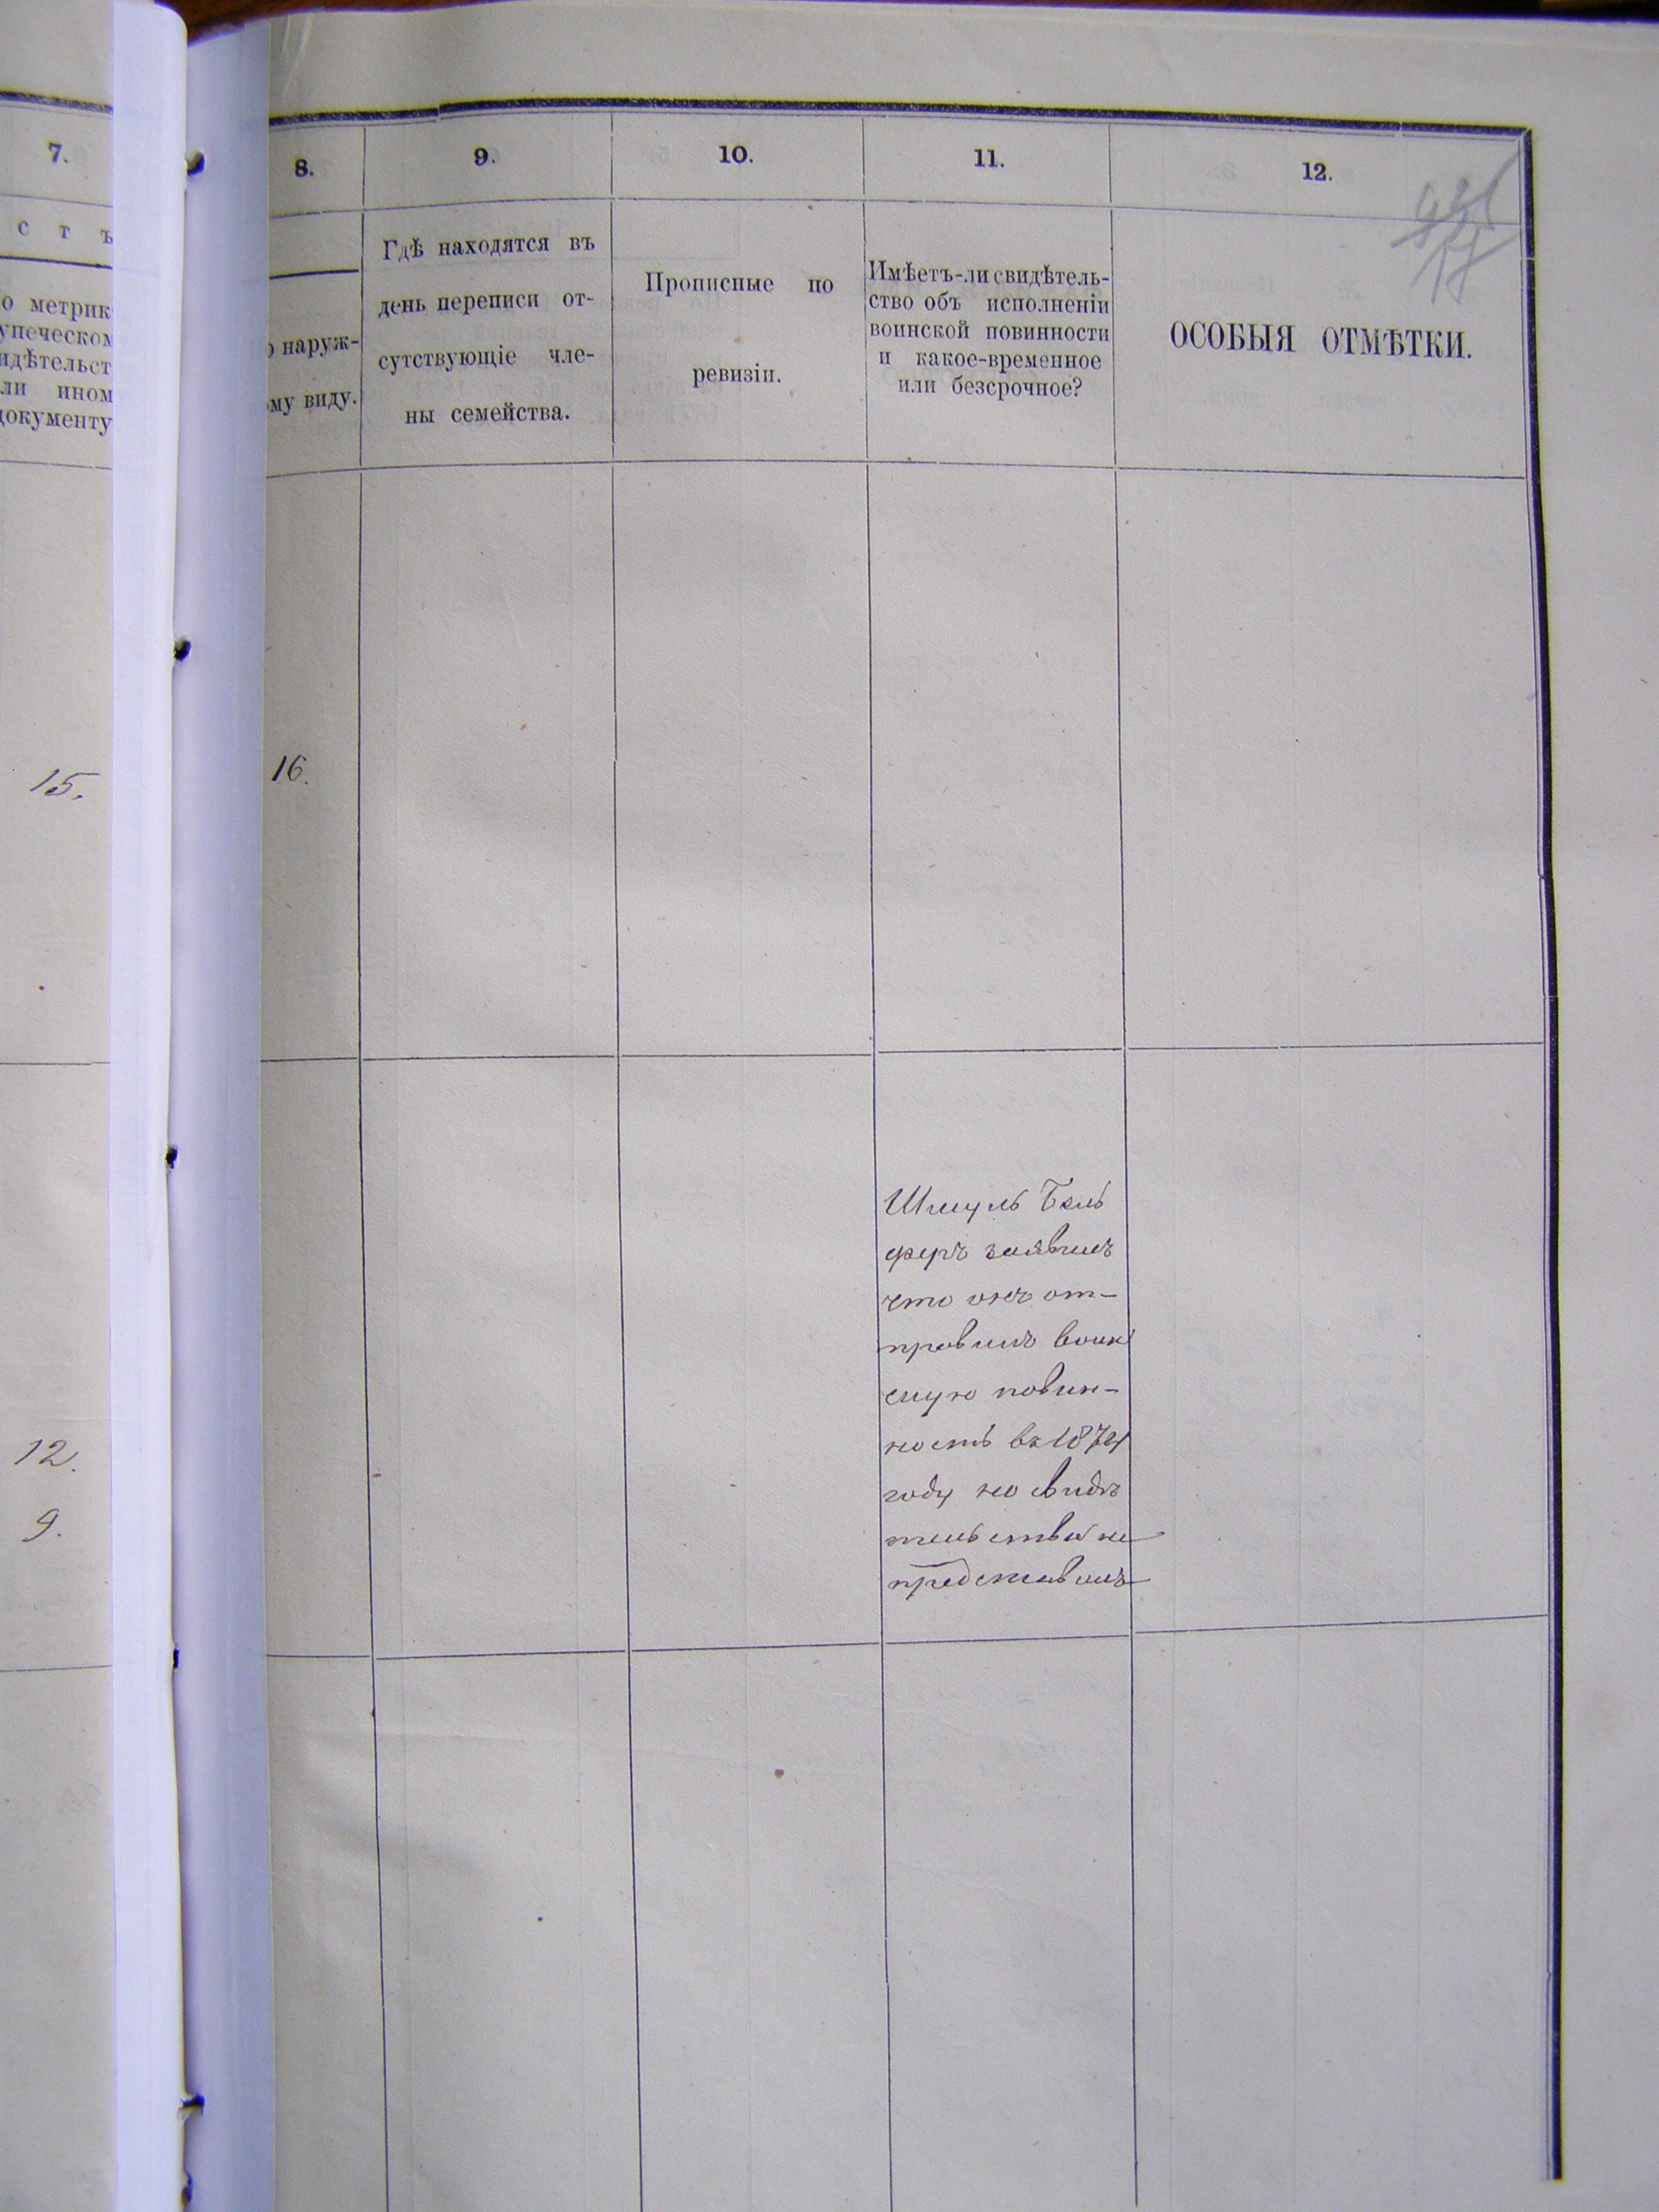 7.
8.
9.
10.
11.
12.
стъ
о метрик
упеческом
идѣтельст
ли ином
документу
о наруж-
ому виду.
Гдѣ находятся въ
день переписи от-
сутствующіе чле-
ны семейства.
Прописные по
ревизіи.
Имѣетъ-ли свидѣтель-
ство объ исполненіи
воинской повинности
и какое-временное
или безсрочное?
ОСОБЫЯ ОТМѢТКИ.
15.
16.
12.
9.
Шмуль Бель
феръ заявилъ
что онъ от-
правилъ воин
скую повин-
ность въ 1874
году но свидѣ
тельства не
представилъ